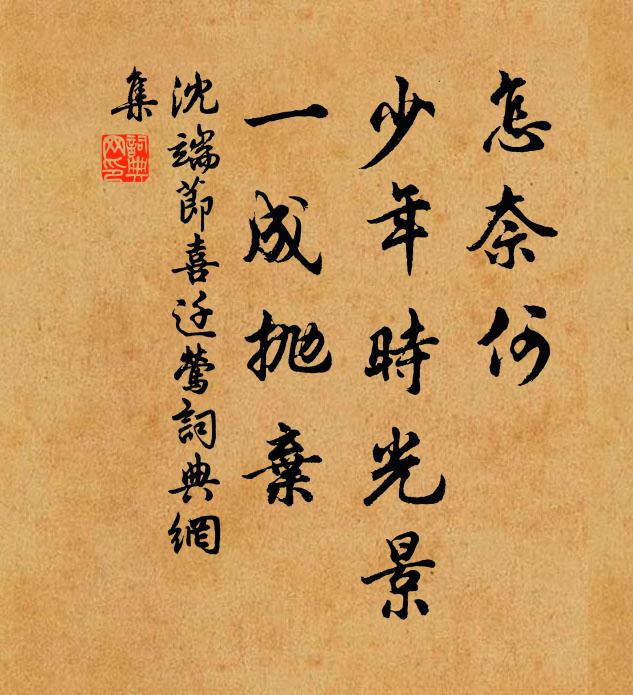 怎奈何
少年時光景
一成抛棄
沈端節喜迁鶯詞典網
集
詞典
网印